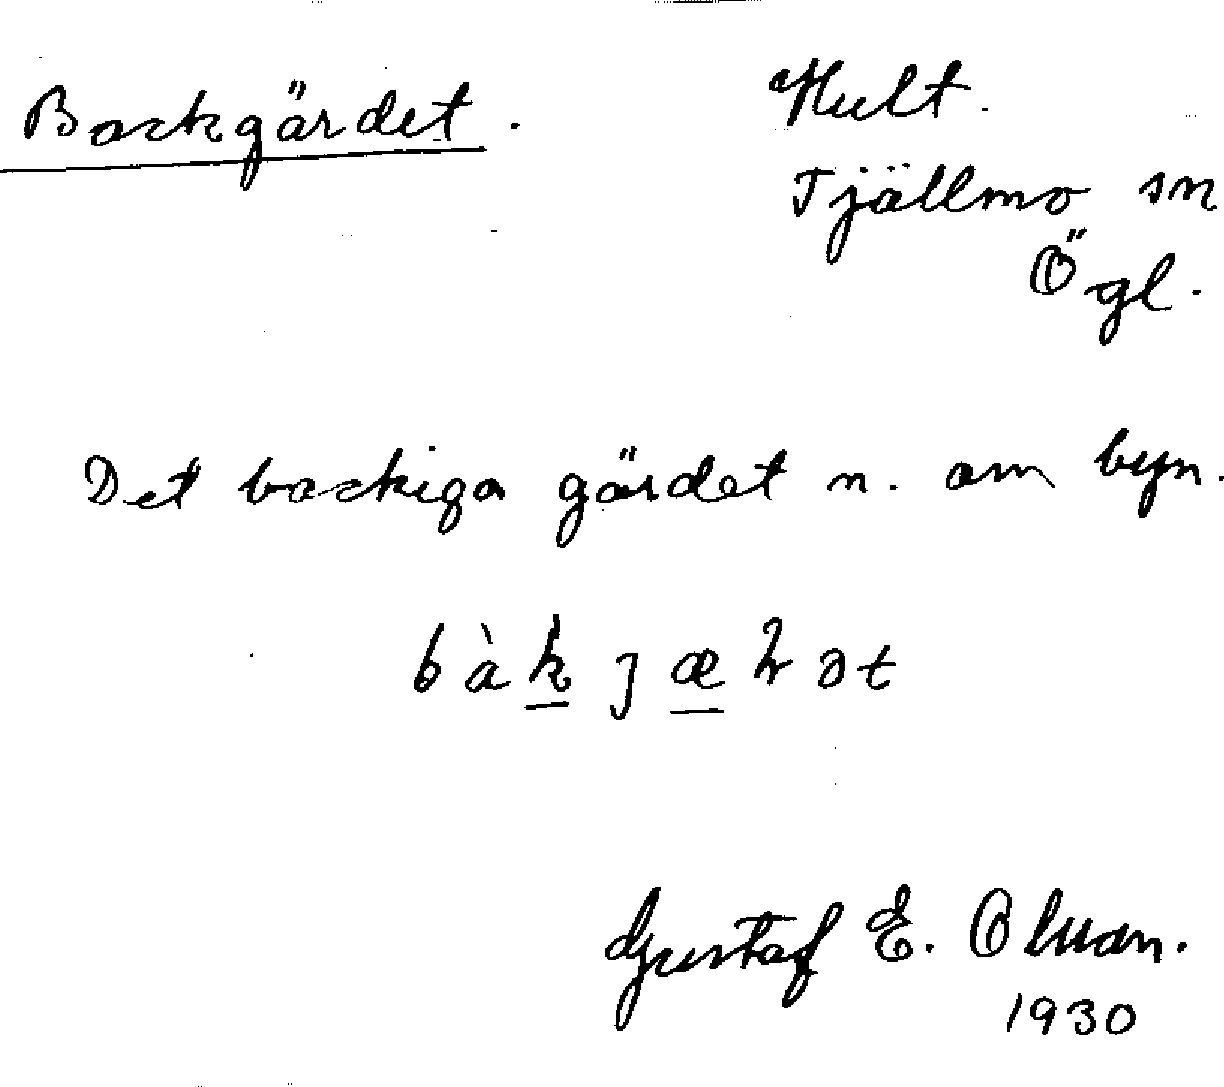 Backgärdet. Hult.
Tjällmo sn
Ögl.
Det backiga gärdet n. om byn.
Gustaf E. Olsson.
1930